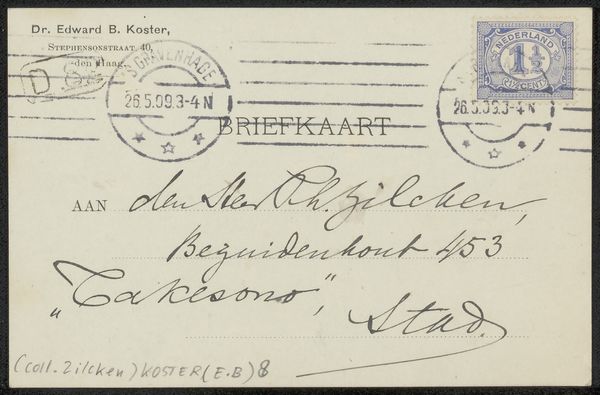 Dr. Edward B. Koster,
Stephensonstraat 40,
den Haag.
D
'S GRAVENHAGE
26.5.09.3-4 N
NEDERLAND
1½
CENT
26.5.09.3-4 N
BRIEFKAART
AAN den Heer Ph. Zilcken,
Bezuidenhout 453
"Takesono",
Stad.
(coll. Zilcken) KOSTER (E.B) 8